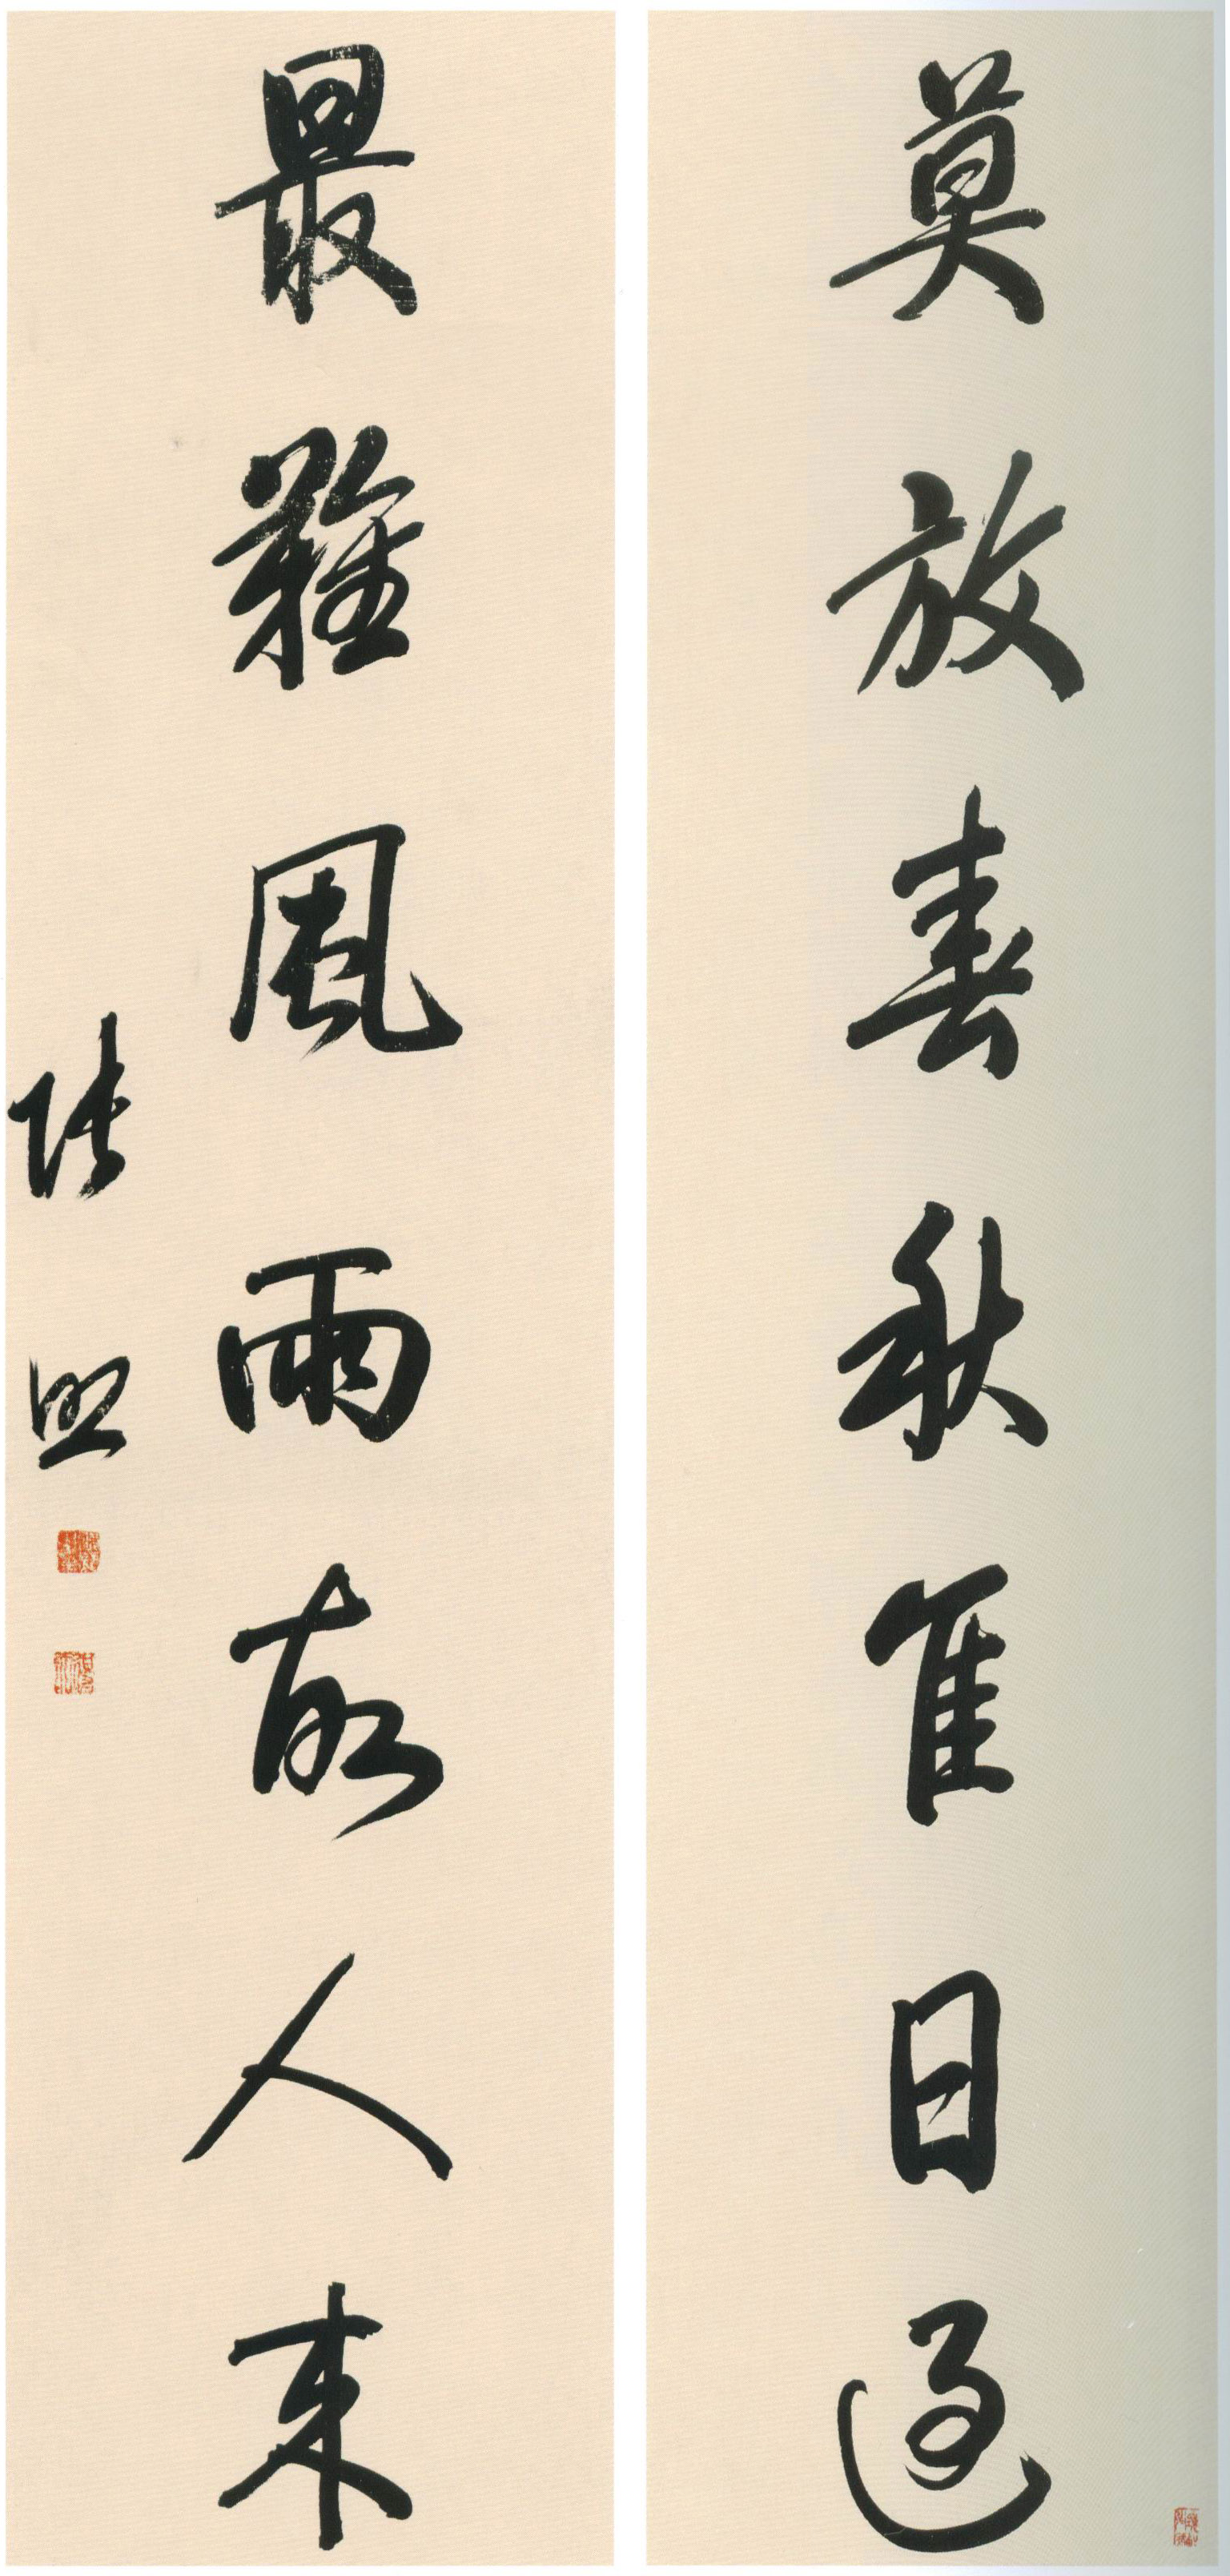 莫放春秋佳日過
最難風雨故人來
張照